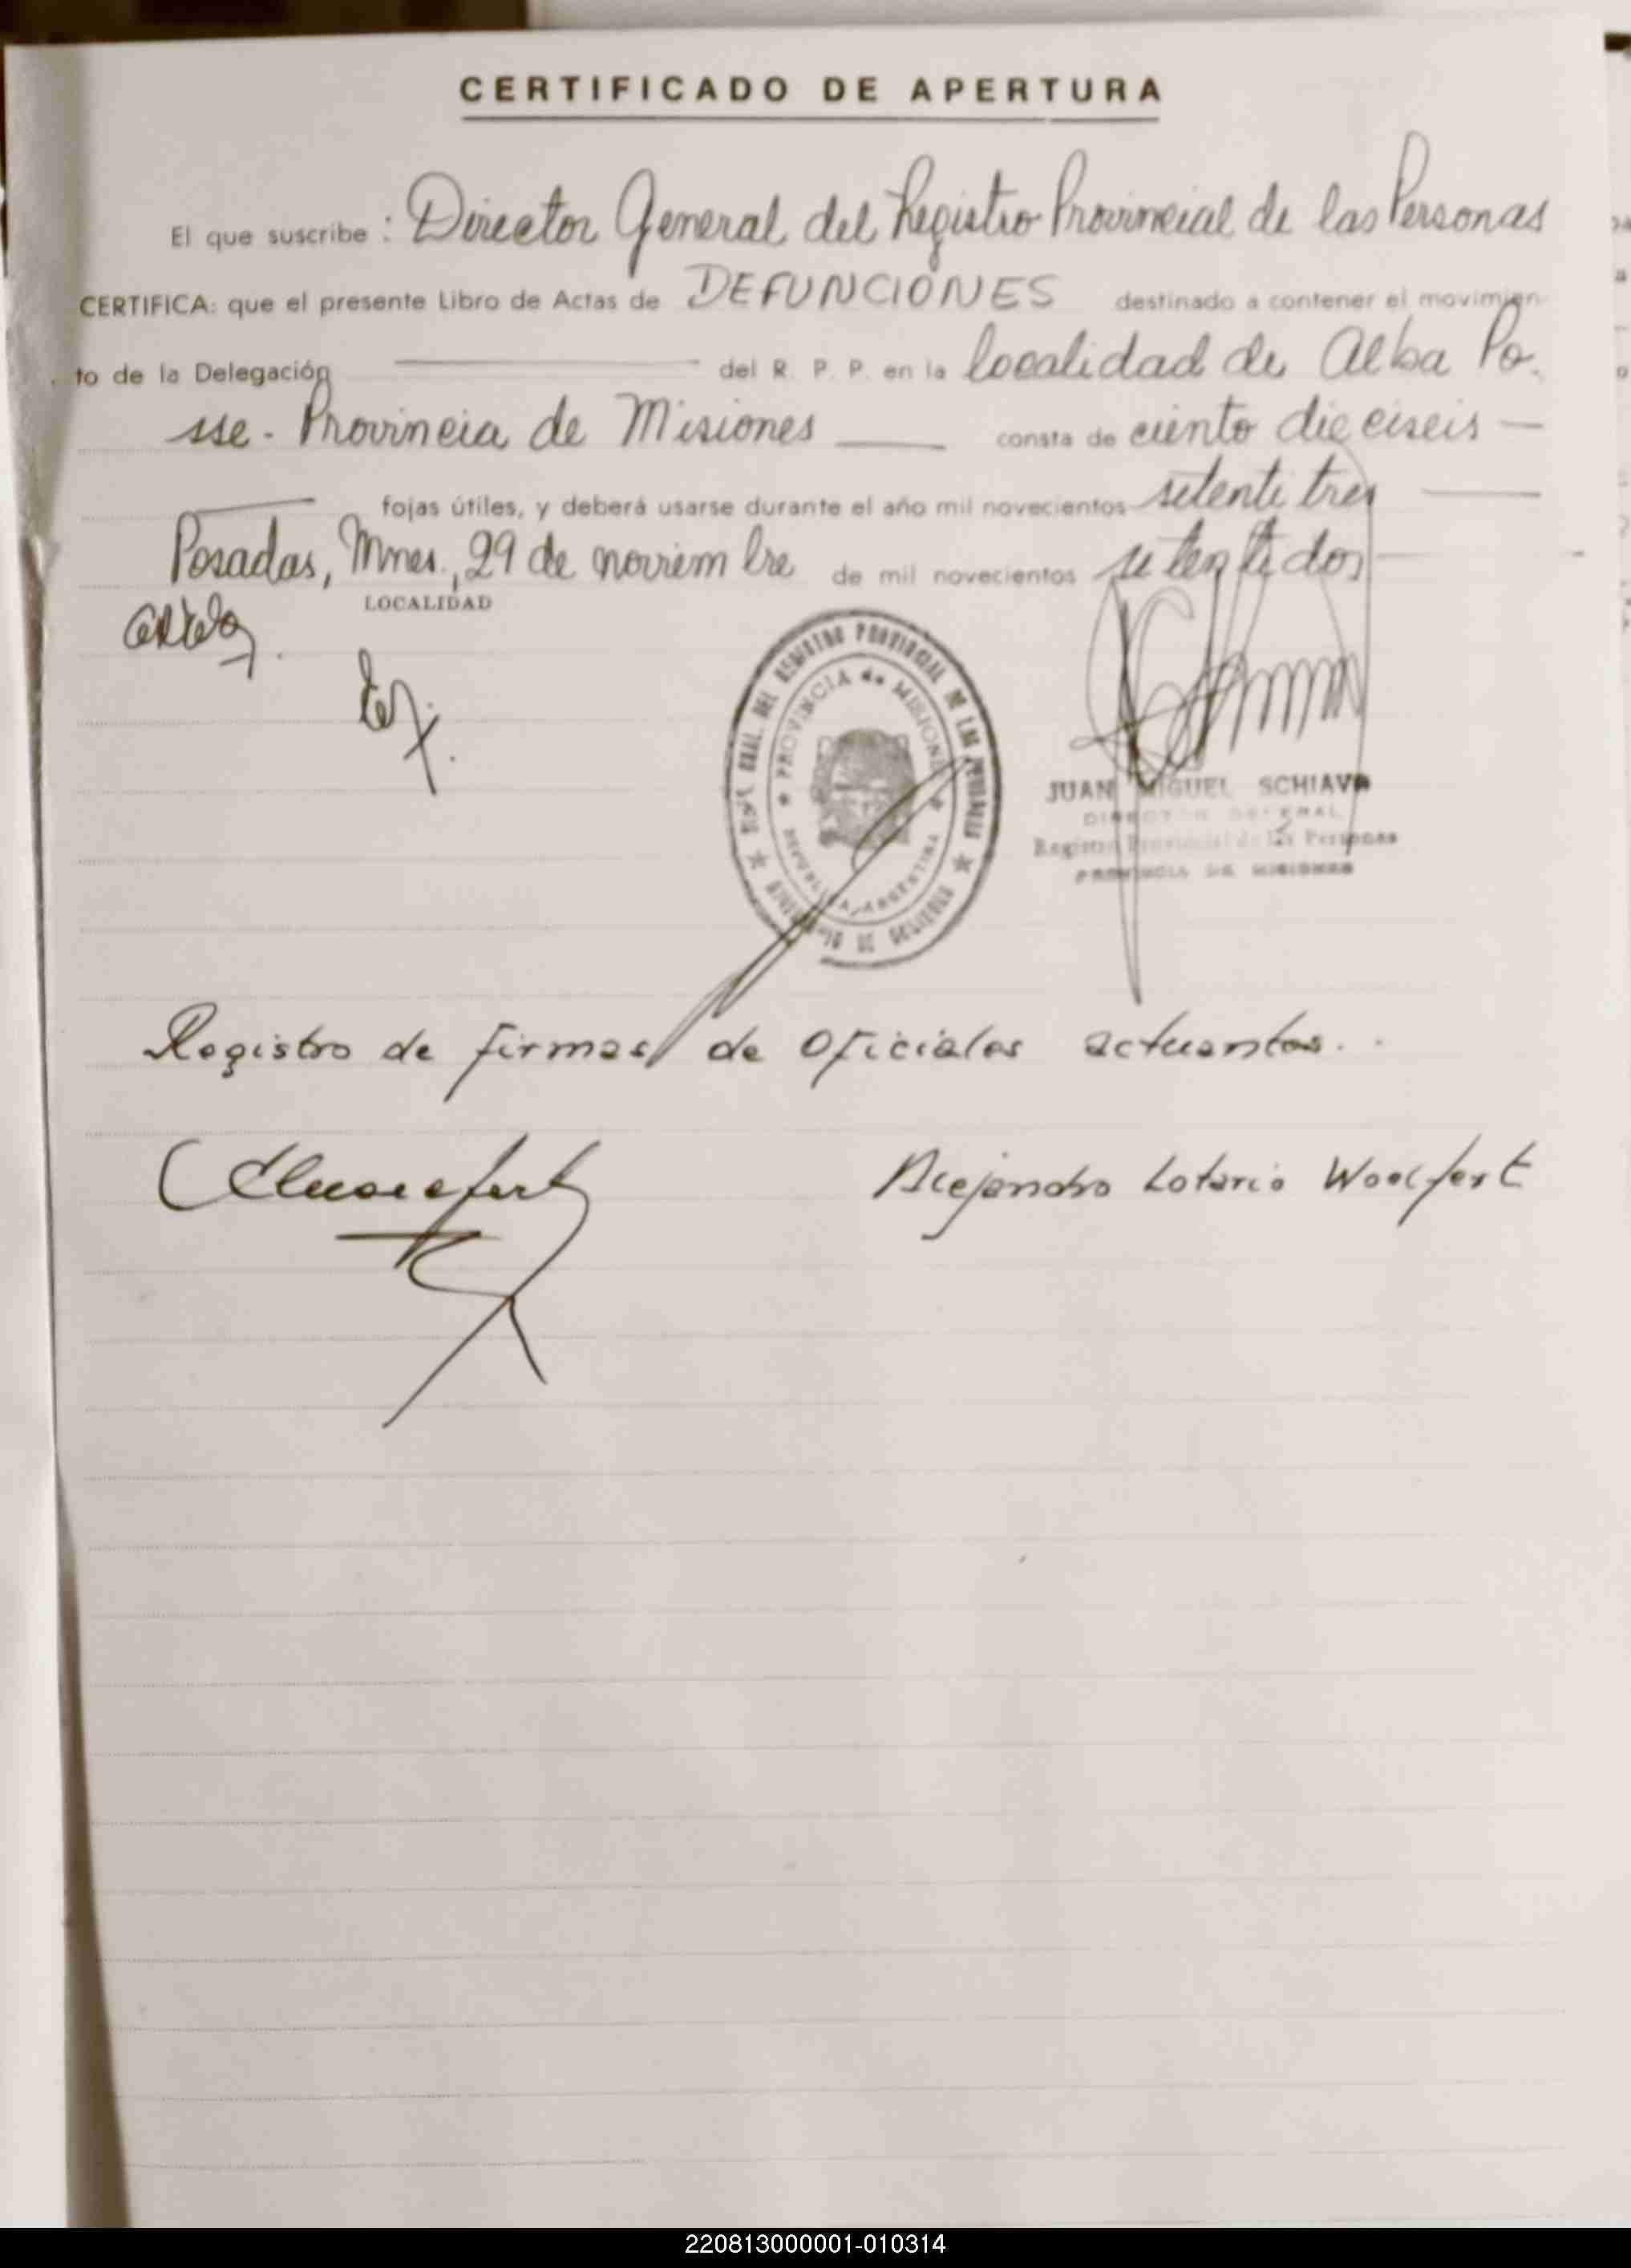 CERTIFICADO DE APERTURA
El que suscribe: Director General del Registro Provincial de las Personas
CERTIFICA: que el presente Libro de Actas de DEFUNCIONES destinado a contener el movimien-
to de la Delegación del R. P. P. en la localidad de Alba Po.
sse - Provincia de Misiones consta de ciento dieciseis
fojas útiles, y deberá usarse durante el año mil novecientos setenti tres
Posadas, Mnes., 29 de noviembre de mil novecientos setenti dos
LOCALIDAD
DEL REGISTRO PROVINCIAL DE LAS PERSONAS
PROVINCIA de MISIONES
REPUBLICA ARGENTINA
JUAN MIGUEL SCHIAVO
DIRECTOR GENERAL
Registro Provincial de las Personas
PROVINCIA DE MISIONES
Registro de firmas de Oficiales actuantes.
Alejandro Lotario
220813000001-010314